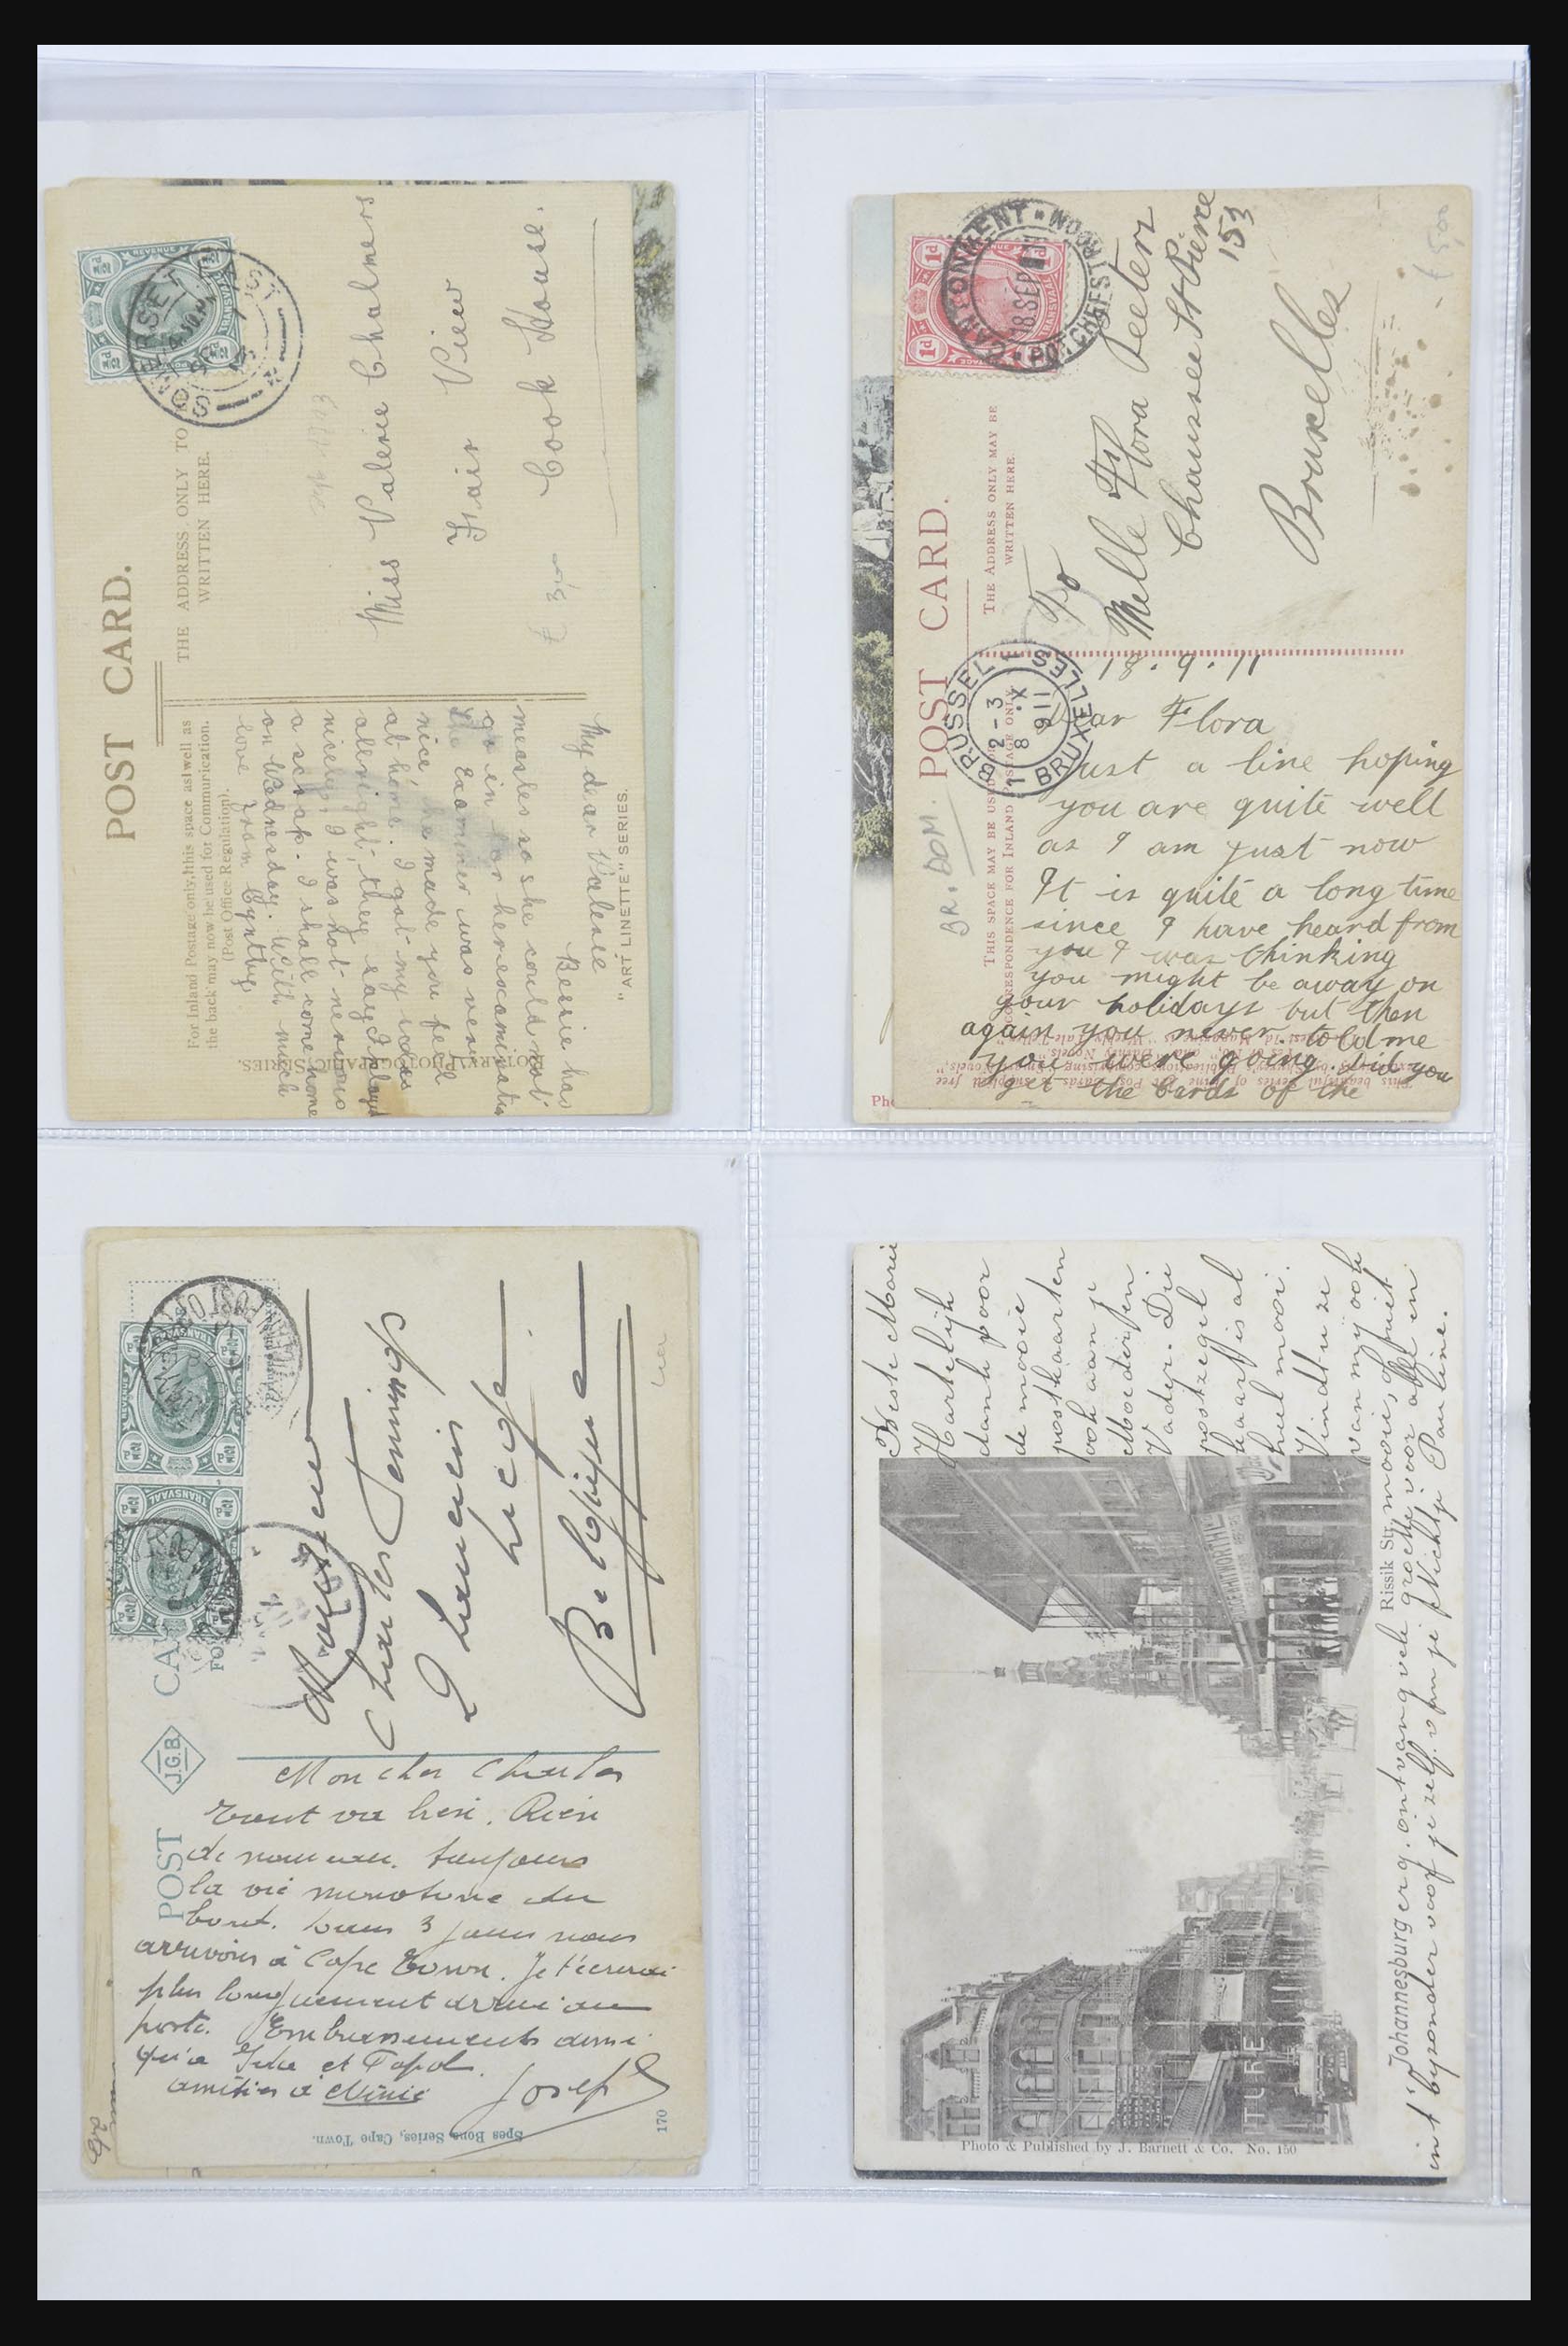 POST CARD.
THE ADDRESS ONLY TO
WRITTEN HERE.
For Inland Postage only, this space as well as
the back may now be used for Communication.
(Post Office Regulation).
SOMERSET
REVENUE
TRANSVAAL
Miss Valerie Chalmers
Fair View
Cook House.
£ 3,00
My dear Valerie
Bessie has
measles so she could not
go in for her examination
the Examiner was very
nice he made you feel
at home. I got my
allright, they say I played
nicely, I was not nervous
a scrap. I shall come home
on Wednesday. With much
love from Cynthy
"ART LINETTE" SERIES.
ROTARY PHOTOGRAPHIC SERIES.
POST CARD.
THE ADDRESS ONLY MAY BE
WRITTEN HERE.
THIS SPACE MAY BE USED
CORRESPONDENCE FOR INLAND POSTAGE ONLY.
CANTONMENT
18 SEP 11
POTCHEFSTROOM
1d 1d
TRANSVAAL
BRUSSEL 1
2-3
8 .X
911
1 BRUXELLES
BR. DOM.
To
Melle Flora Peeters
Chaussee St Pierre
153
Bruxelles
£ 5,00
18.9.11
Dear Flora
Just a line hoping
you are quite well
as I am just now
It is quite a long time
since I have heard from
you I was thinking
you might be away on
your holidays but then
again you never told me
you were going. Did you
get the Cards of the
This beautiful Series of Fine Art Post Cards is supplied free
Novels
POST CA
J.G.B.
FO
TRANSVAAL
TRANSVAAL
Monsieur
Charles Jennings
Liege
Belgique
Mon cher Charles
Tout va bien. Rien
de nouveau. Toujours
la vie monotone du
bord. Dans 3 jours nous
arrivons à Cape Town. Je t'écrirai
plus longuement arrivé au
port. Embrassements ainsi
qu'a et Popol
amitiés à Mimie
Josef
Spes Bona Series, Cape Town.
170
Beste Marie
Hartelyk
dank voor
de mooie
postkaarten
ook aan je
Moeder en
Vader. Die
postzegel
kaart is al
heel mooi.
Vindt u ze
van my ook
mooi,
Johannesburg
Rissik Str.
ontvang vele groete voor allen en
in 't byzonder voor je zelf. van je Nichtje Pauline.
Photo & Published by J. Barnett & Co. No. 150